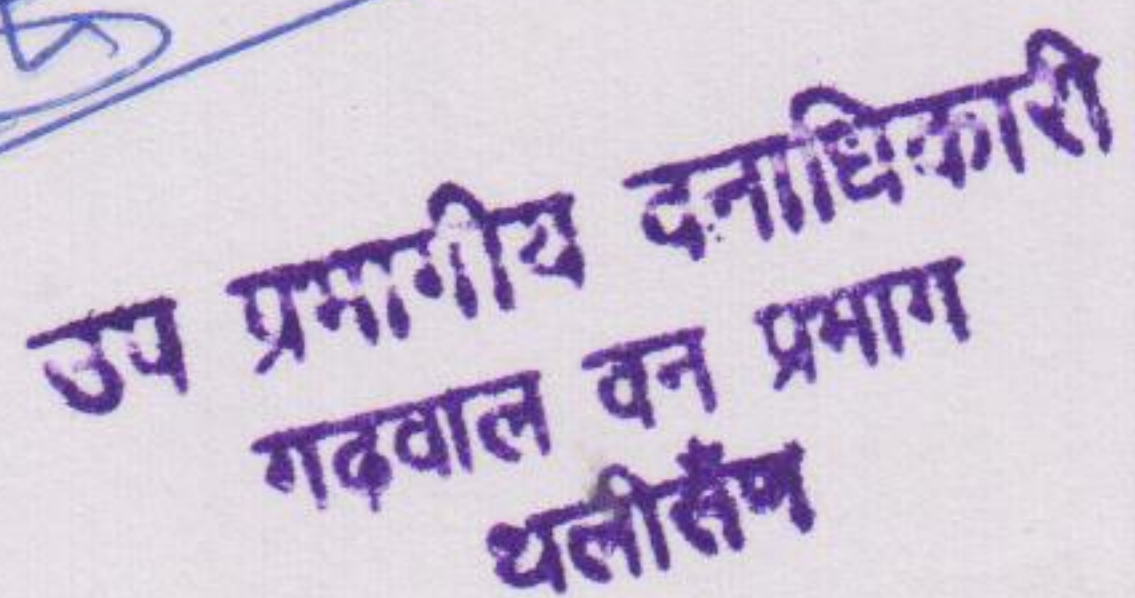 उप प्रभागीय वनाधिकारी
गढ़वाल वन प्रभाग
थलीसैंण